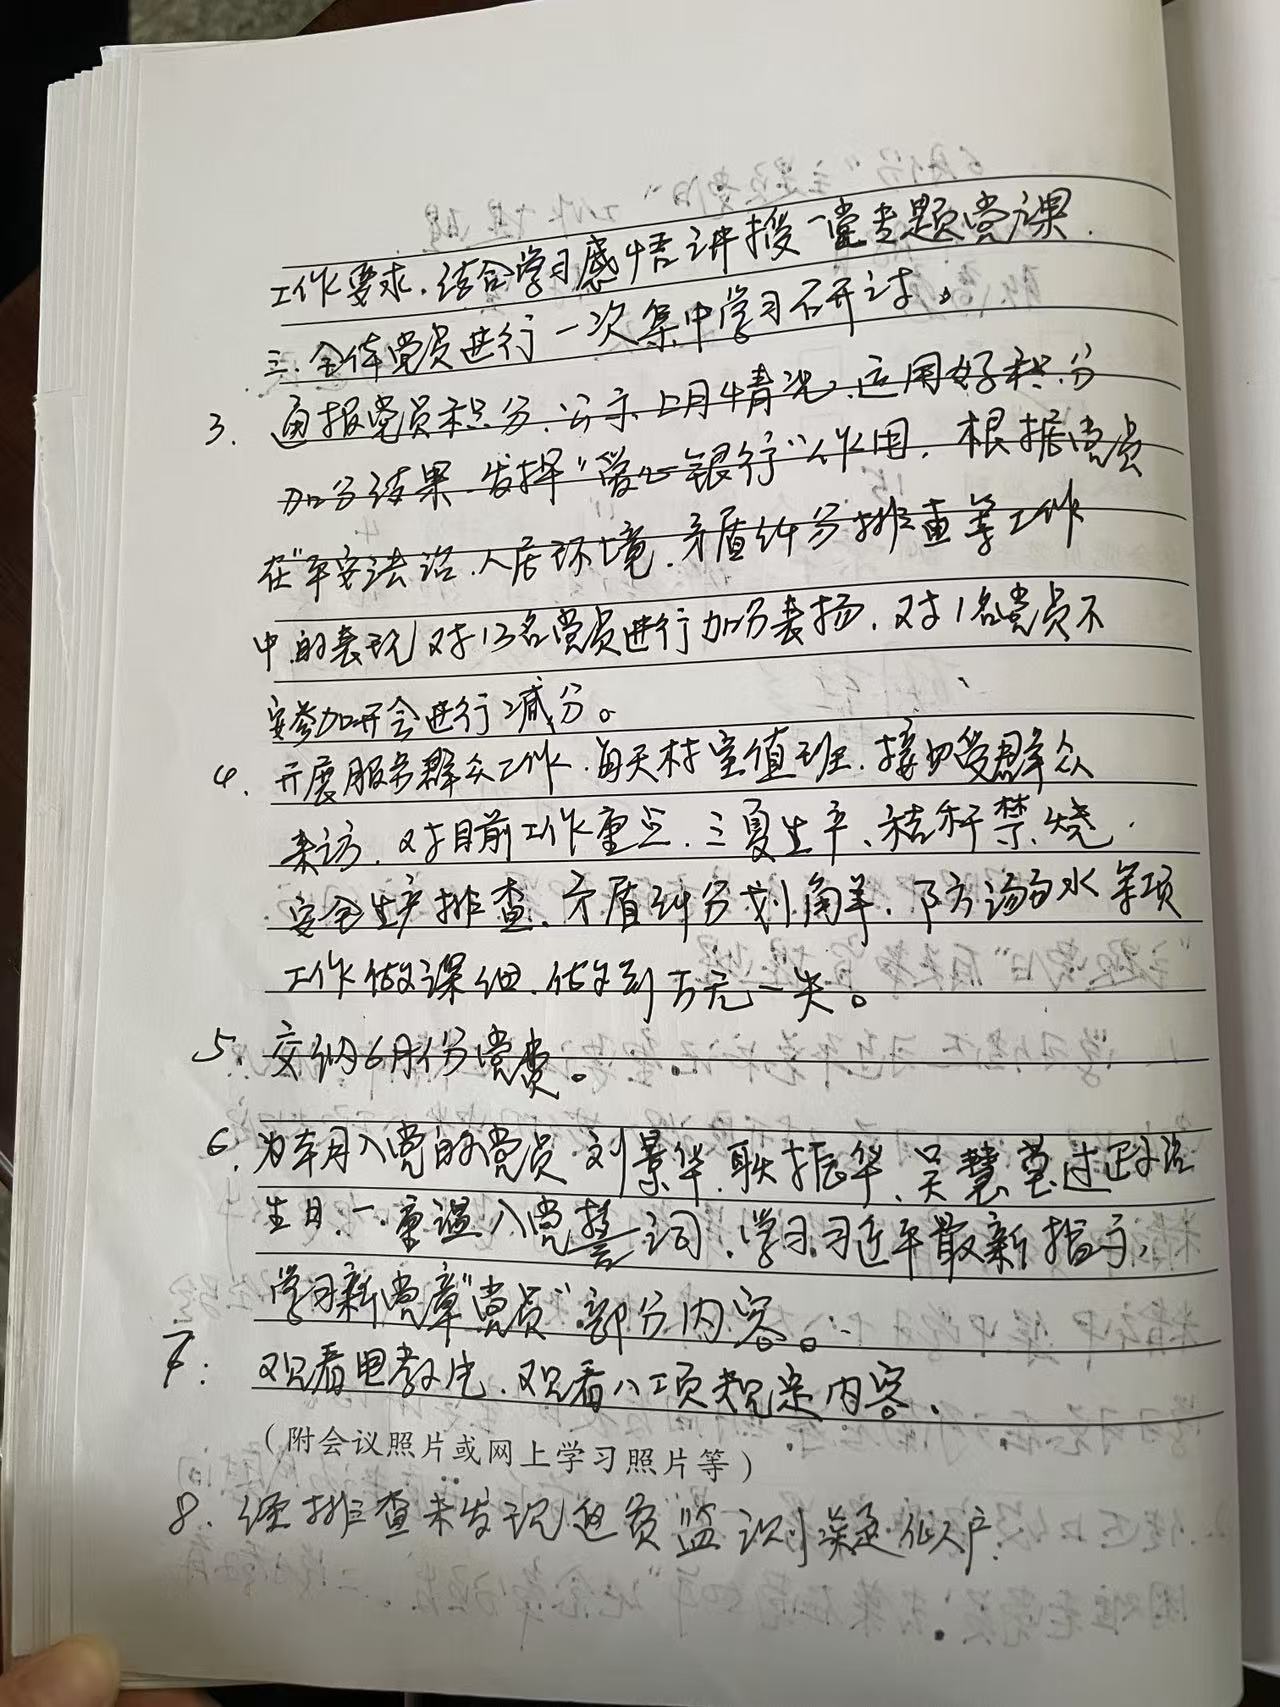 工作要求,结合学习感悟讲授一堂专题党课.
三.全体党员进行一次集中学习研讨。
3. 通报党员积分、公示上月情况、运用好积分
加分结果、发挥“爱心银行”作用,根据党员
在“平安法治、人居环境、矛盾纠分排查等工作
中的表现对13名党员进行加分表扬,对1名党员不
按参加开会进行减分。
4. 开展服务群众工作,每天村室值班,接受群众
来访,对目前工作重点,三夏生产、秸秆禁烧.
安全生产排查、矛盾纠分化解、防溺水等项
工作做深细,做到万无一失。
5. 交纳6月份党费。
6. 为本月入党的党员刘景华、耿振华、吴慧莹过政治
生日,一重温入党誓词,学习习近平最新指示,
学习新党章“党员”部分内容。
7. 观看电教片,观看八项规定内容。
(附会议照片或网上学习照片等)
8. 经排查未发现返贫监测疑似户.